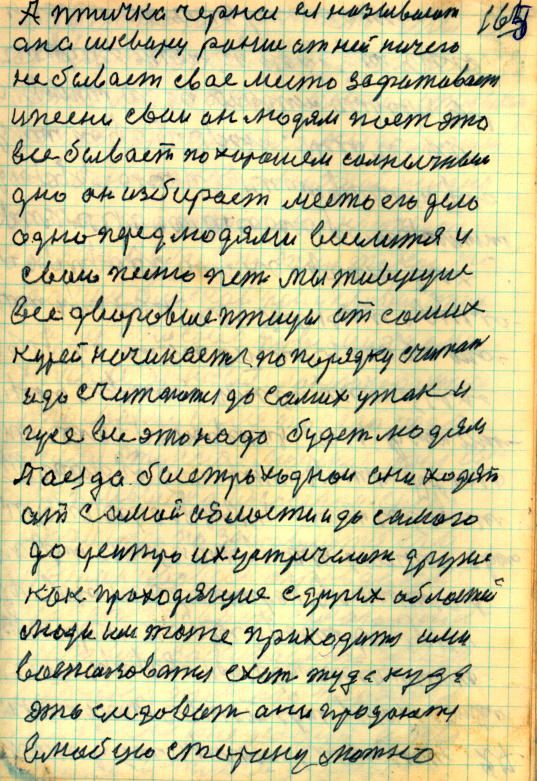 А птичка черная ея называют 165
она шквару раньше от ней ничего
не бывает свое место захватывает
и песни свои он людям поет это
все бывает по хорошем солнычным
дню он избирает место его дело
одно перед людями виелится и
свою песню петь мы живущие
все дворовые птицы от самих
курей начинается по порядку считат
и до считаются до самих уток и
гусе все это надо будет людям
Поезда быстроходнои они ходят
от самой области и до самого
до центра их устричают други
как проходящие с других областей
люди им тоже приходится ими
воспользоватя ехат туда куда
это следоват они продаются
в любую сторону можно